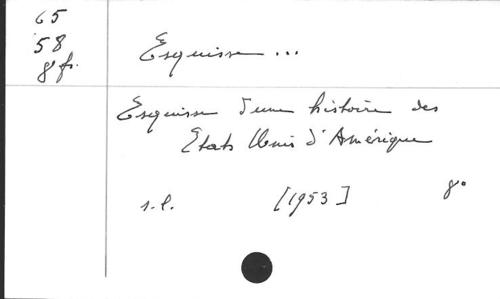 65
58
8° fr.
Esquisse ...
Esquisse d'une histoire des
Etats Unis d'Amérique
s.l. [1953] 8°